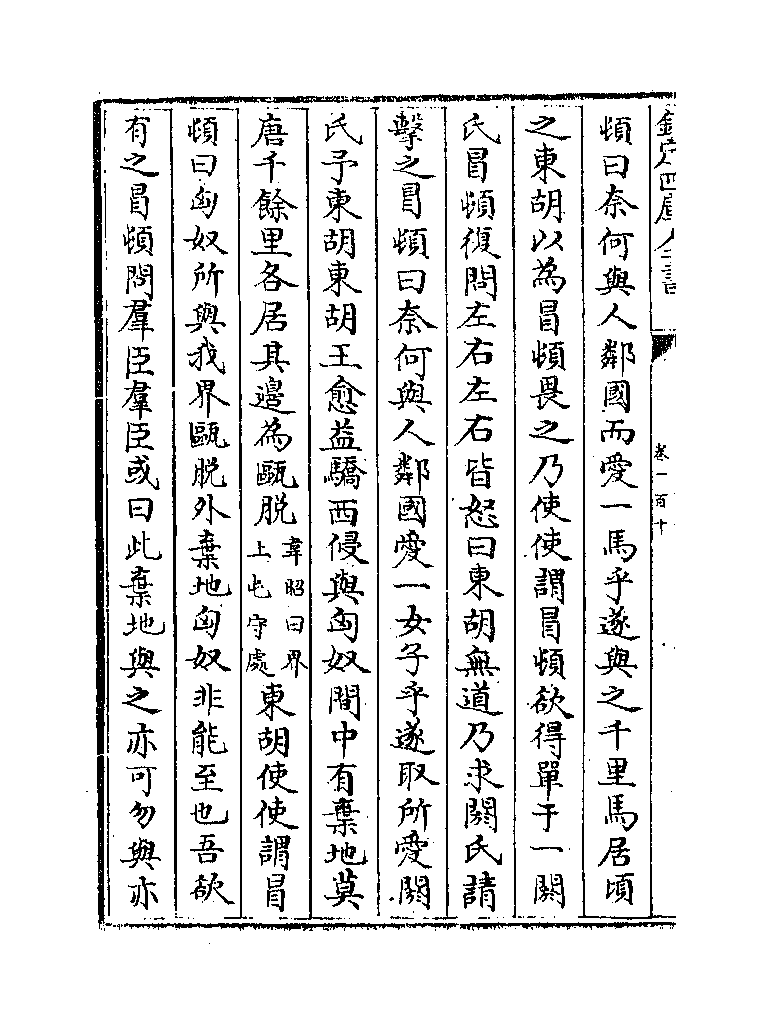 欽定四庫全書
卷一百十
頓曰奈何與人鄰國而愛一馬乎遂與之千里馬居頃
之東胡以為冒頓畏之乃使使謂冒頓欲得單于一閼
氏冒頓復問左右左右皆怒曰東胡無道乃求閼氏請
擊之冒頓曰奈何與人鄰國愛一女子乎遂取所愛閼
氏予東胡東胡王愈益驕西侵與匈奴間中有棄地莫
唐千餘里各居其邊為甌脫韋昭曰界上屯守處東胡使使謂冒
頓曰匈奴所與我界甌脫外棄地匈奴非能至也吾欲
有之冒頓問羣臣羣臣或曰此棄地與之亦可勿與亦